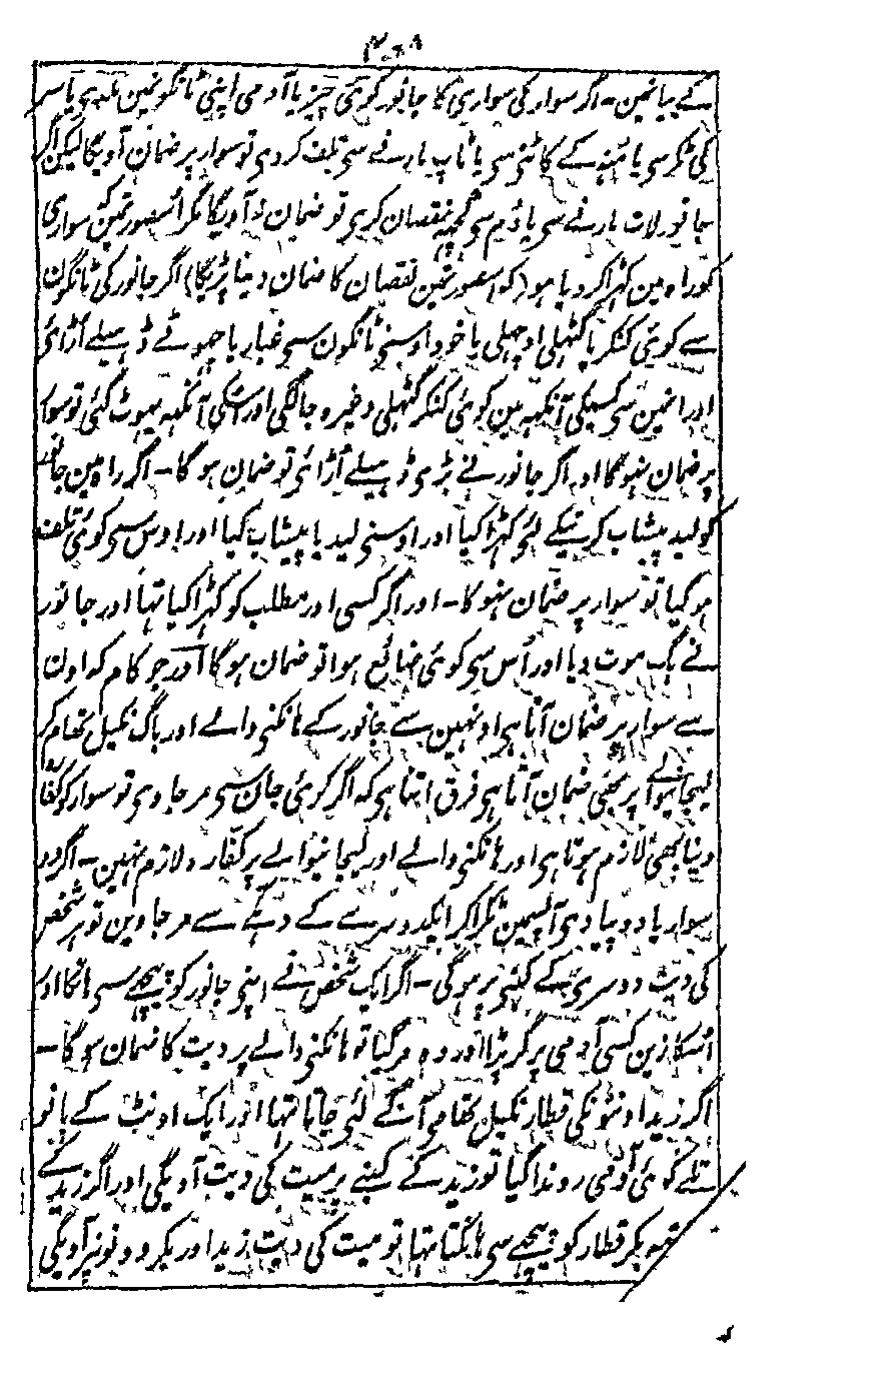 ۳۰۸
کے بیانمین - اگر سوار کی سواری کا جانور کوئی چیز یا آدمی اپنی ٹانگونمین ملدی یا سر
کی ٹکر سی یا مُنہ کے کاٹنی سی یا ٹاپ مارنے سی تلف کر دی تو سوار پر ضمان آویگا لیکن اگر
جانور لات مارنے سی یا دُم سی کچہہ نقصان کری تو ضمان نہ آویگا مگر اُسصورتمین کہ سواری
کو راہ مین کہڑا کر دیا ہو (کہ اسصورتمین نقصان کا ضمان دینا پڑیگا) اگر جانور کی ٹانگون
سے کوئی کنکر یا گٹہلی اوچہلی یا خود اوسنی ٹانگون سی غبار یا چہوٹے ڈہیلے اُڑائی
اور انمین سی کسیکی آنکہہ مین کوئی کنکر گٹہلی وغیرہ جا لگی اور اسکی آنکہہ پہوٹ گئی تو سوار
پر ضمان نہوگا اور اگر جانور نے بڑی ڈہیلے اُڑائی تو ضمان ہوگا - اگر راہ مین جانور
کو لید پیشاب کرنیکے لئی کہڑا کیا اور اوسنی لید یا پیشاب کیا اور اوس سی کوئی تلف
ہو گیا تو سوار پر ضمان نہوگا - اور اگر کسی اور مطلب کو کہڑا کیا تہا اور جانور
نے ہگ موت دیا اور اُس سی کوئی ضائع ہوا تو ضمان ہوگا اور جو کام کہ اون
سے سوار پر ضمان آتا ہی اونہین سے جانور کے ہانکنی والے اور باگ نکیل تہام کر
لیجانیوالے پر بھی ضمان آتا ہی فرق اتنا ہی کہ اگر کوئی جان سی مر جاوی تو سوار کو کفارہ
دینا بھی لازم ہوتا ہی اور ہانکنی والے اور لیجانیوالے پر کفارہ لازم نہین - اگر دو
سوار یا دو پیادی آپسمین ٹکرا کر ایکدوسرے کے دہکے سے مر جاوین تو ہر شخص
کی دیت دوسری کے کنبی پر ہوگی - اگر ایک شخص نے اپنی جانور کو پیچہے سی ہانکا اور
اُسکا زین کسی آدمی پر گر پڑا اور وہ مر گیا تو ہانکنی والے پر دیت کا ضمان ہوگا -
اگر زید اونٹونکی قطار نکیل تھامی آگے لئی جاتا تہا اور ایک اونٹ کے پانو
تلے کوئی آدمی روندا گیا تو زید کے کنبے پر میت کی دیت آویگی اور اگر زید کے
بکر قطار کو پیچہے سی ہانکتا تہا تو میت کی دیت زید اور بکر دونونپر آویگی